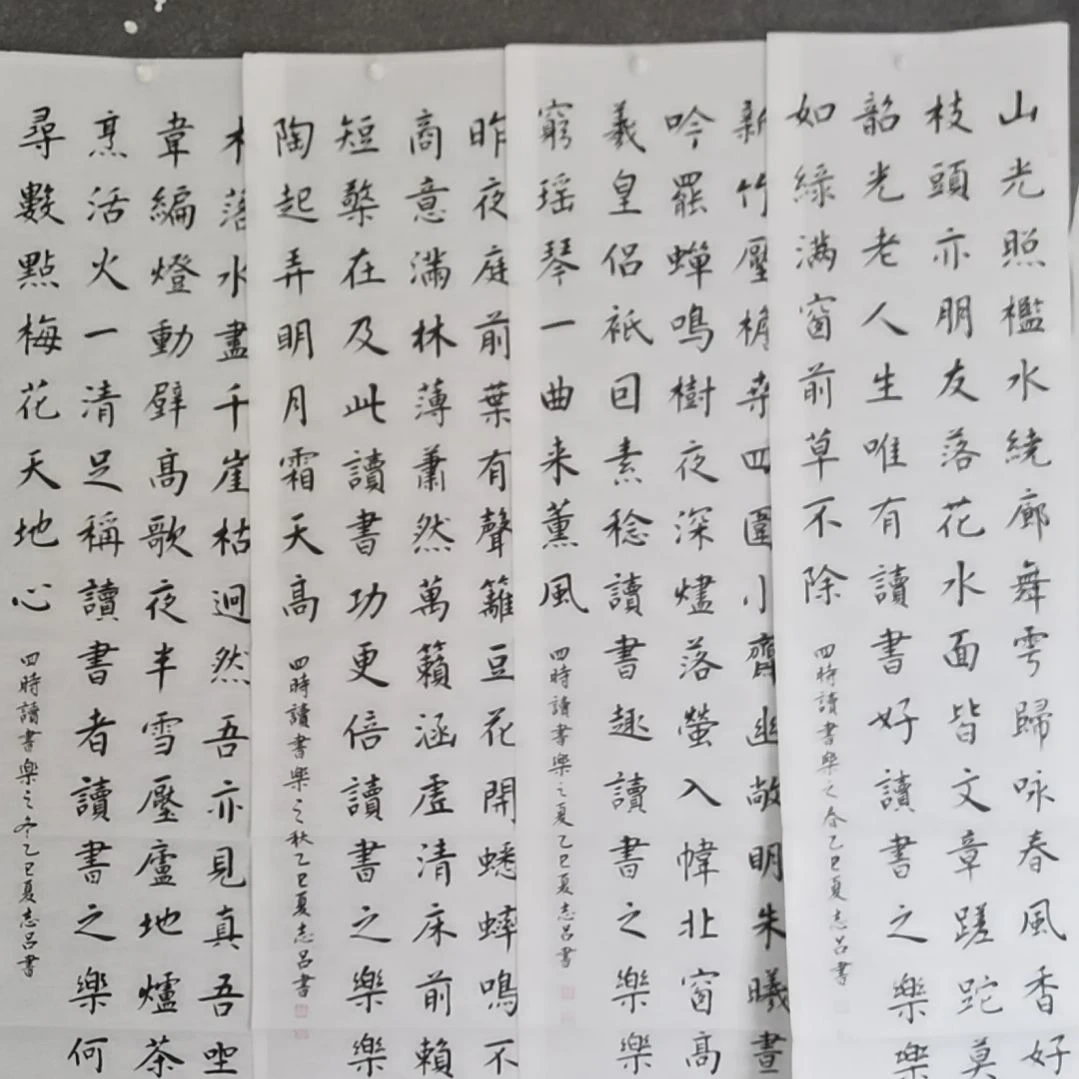 山光照檻水繞廊舞雩歸咏春風香好
枝頭亦朋友落花水面皆文章蹉跎莫
韶光老人生唯有讀書好讀書之楽楽
如綠满窗前草不除
四時讀書楽之春乙巳夏志呂書
新竹壓檐桑四圍小齋幽敞明朱曦晝
吟罷蟬鳴樹夜深燼落螢入幃北窗高
羲皇侶祇因素稔讀書趣讀書之楽楽
窮瑶琴一曲来薰風
四時讀書楽之夏乙巳夏志呂書
昨夜庭前葉有聲籬豆花開蟋蟀鳴不
商意滿林薄蕭然萬籟涵虛清床前賴
短檠在及此讀書功更倍讀書之楽楽
陶起弄明月霜天高
四時讀書楽之秋乙巳夏志呂書
木落水盡千崖枯迥然吾亦見真吾坐
韋編燈動壁高歌夜半雪壓廬地爐茶
烹活火一清足稱讀書者讀書之楽何
尋數點梅花天地心
四時讀書楽之冬乙巳夏志呂書